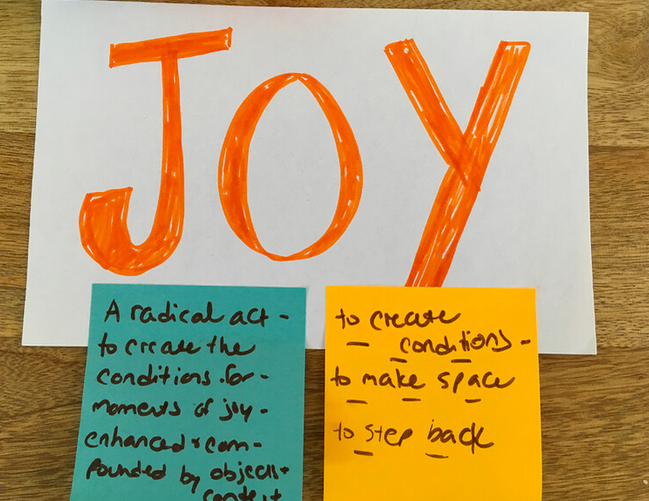 JOY
A radical act -
to create the
conditions for -
moments of joy -
enhanced + com -
pounded by objects +
context
to create
conditions -
to make space
to step back